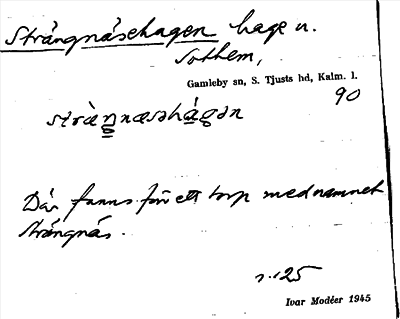 Strängnäsehagen hage u.
Sothem,
Gamleby sn, S. Tjusts hd, Kalm. l.
90
stràŋnæsəhágən
Där fanns förr ett torp med namnet
Strängnäs.
s. 125
Ivar Modéer 1945